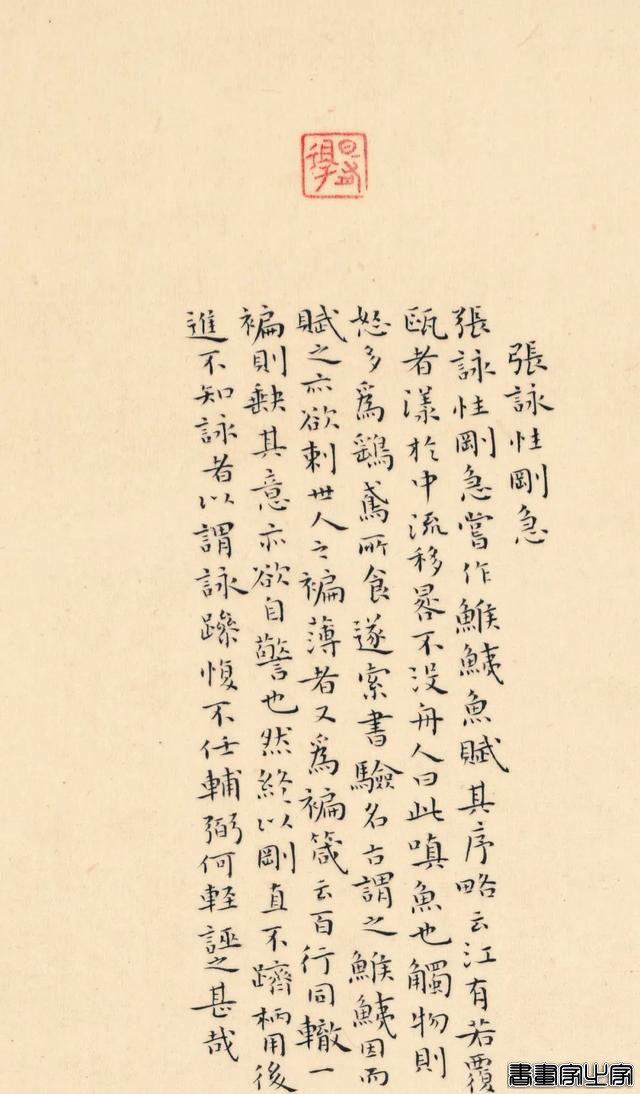 張詠性剛急
張詠性剛急嘗作鯸鮧魚賦其序略云江有若覆
甌者漾於中流移晷不没舟人曰此嗔魚也觸物則
怒多為鵶鳶所食遂索書驗名古謂之鯸鮧因而
賦之亦欲刺世人之褊薄者又為褊箴云百行同轍一
褊則缺其意亦欲自警也然終以剛直不躋柄用後
進不知詠者以謂詠躁愎不任輔弼何輕誣之甚哉
書畫家之家